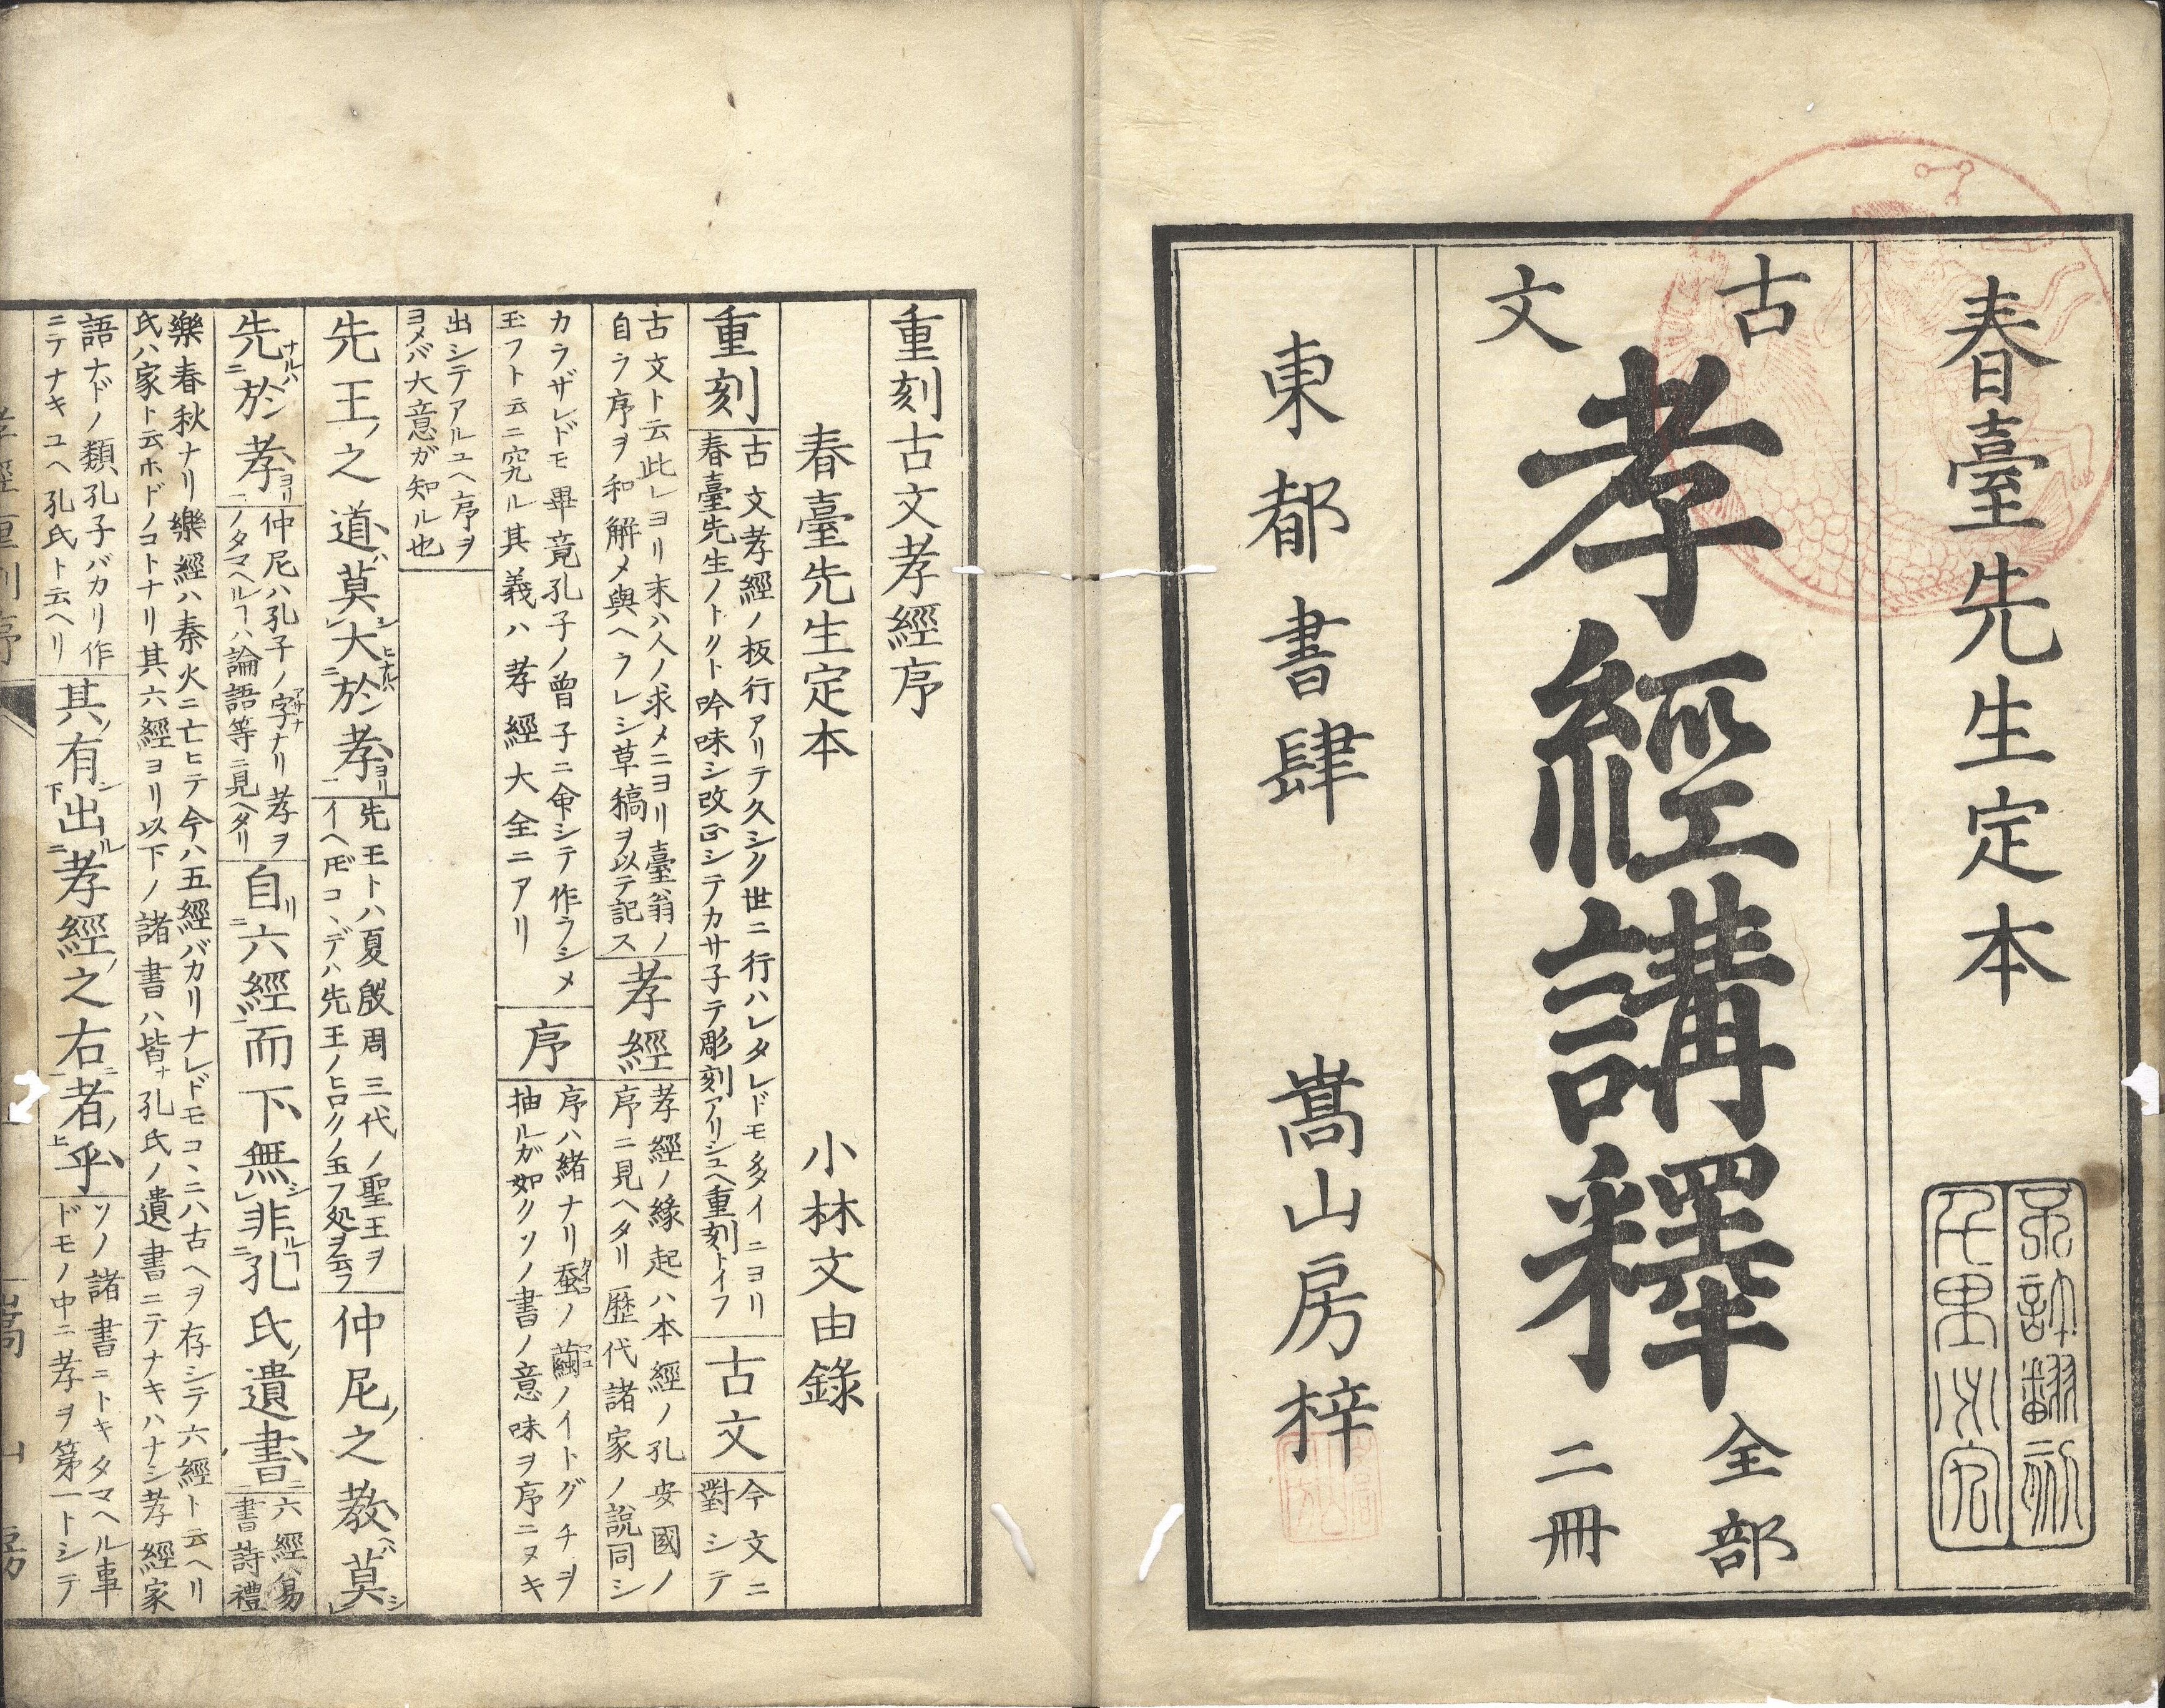 春臺先生定本
不許翻刻
千里必究
古文
孝經講釋
全部
二冊
東都書肆　嵩山房梓
重刻古文孝經序
春臺先生定本　小林文由錄
重刻
古文孝經ノ板行アリテ久シク世ニ行ハレタレドモ多クイニヨリ
春臺先生ノトクト吟味シ改正シテカサ子テ彫刻アリシユヘ重刻トイフ
古文
今文ニ
對シテ
古文ト云此レヨリ末ハ人ノ求メニヨリ臺翁ノ
自ラ序ヲ和解メ與ヘラレシ草稿ヲ以テ記ス
孝經
孝經ノ緣起ハ本經ノ孔安國ノ
序ニ見ヘタリ歷代諸家ノ說同シ
カラザレドモ畢竟孔子ノ曾子ニ命シテ作ラシメ
玉フト云ニ究ル其義ハ孝經大全ニアリ
序
序ハ緒ナリ蚕ノ繭ノイトグチヲ
抽ルガ如クソノ書ノ意味ヲ序ニヌキ
出シテアルユヘ序ヲ
ヨメバ大意ガ知ル也
先王ノ之道ハ莫シ大ヒナルハ於孝ヨリ
先王トハ夏殷周三代ノ聖王ヲ
イヘ𪜈コヽデハ先王ノヒロクノ玉フ処ヲ云フ
仲尼ノ之教ヘハ莫シ
先ナルハ於孝ヨリ
仲尼ハ孔子ノ字ナリ孝ヲ
ノタマヘルヿハ論語等ニ見ヘタリ
自リ六經而下無シ非ルヿ孔氏ノ遺書ニ
六經ハ易
書詩禮
樂春秋ナリ樂經ハ秦火ニ亡ヒテ今ハ五經バカリナレドモコヽニハ古ヘヲ存シテ六經ト云ヘリ
氏ハ家ト云ホドノコトナリ其六經ヨリ以下ノ諸書ハ皆ナ孔氏ノ遺書ニテナキハナシ孝經家
語ナドノ類孔子バカリ作
ニテナキユヘ孔氏ト云ヘリ
其ノ有シ出ル孝經ノ之右ニ者ノ乎
ソノ諸書ニトキタマヘル事
ドモノ中ニ孝ヲ第一トシテ
孝經重刻序
嵩山房